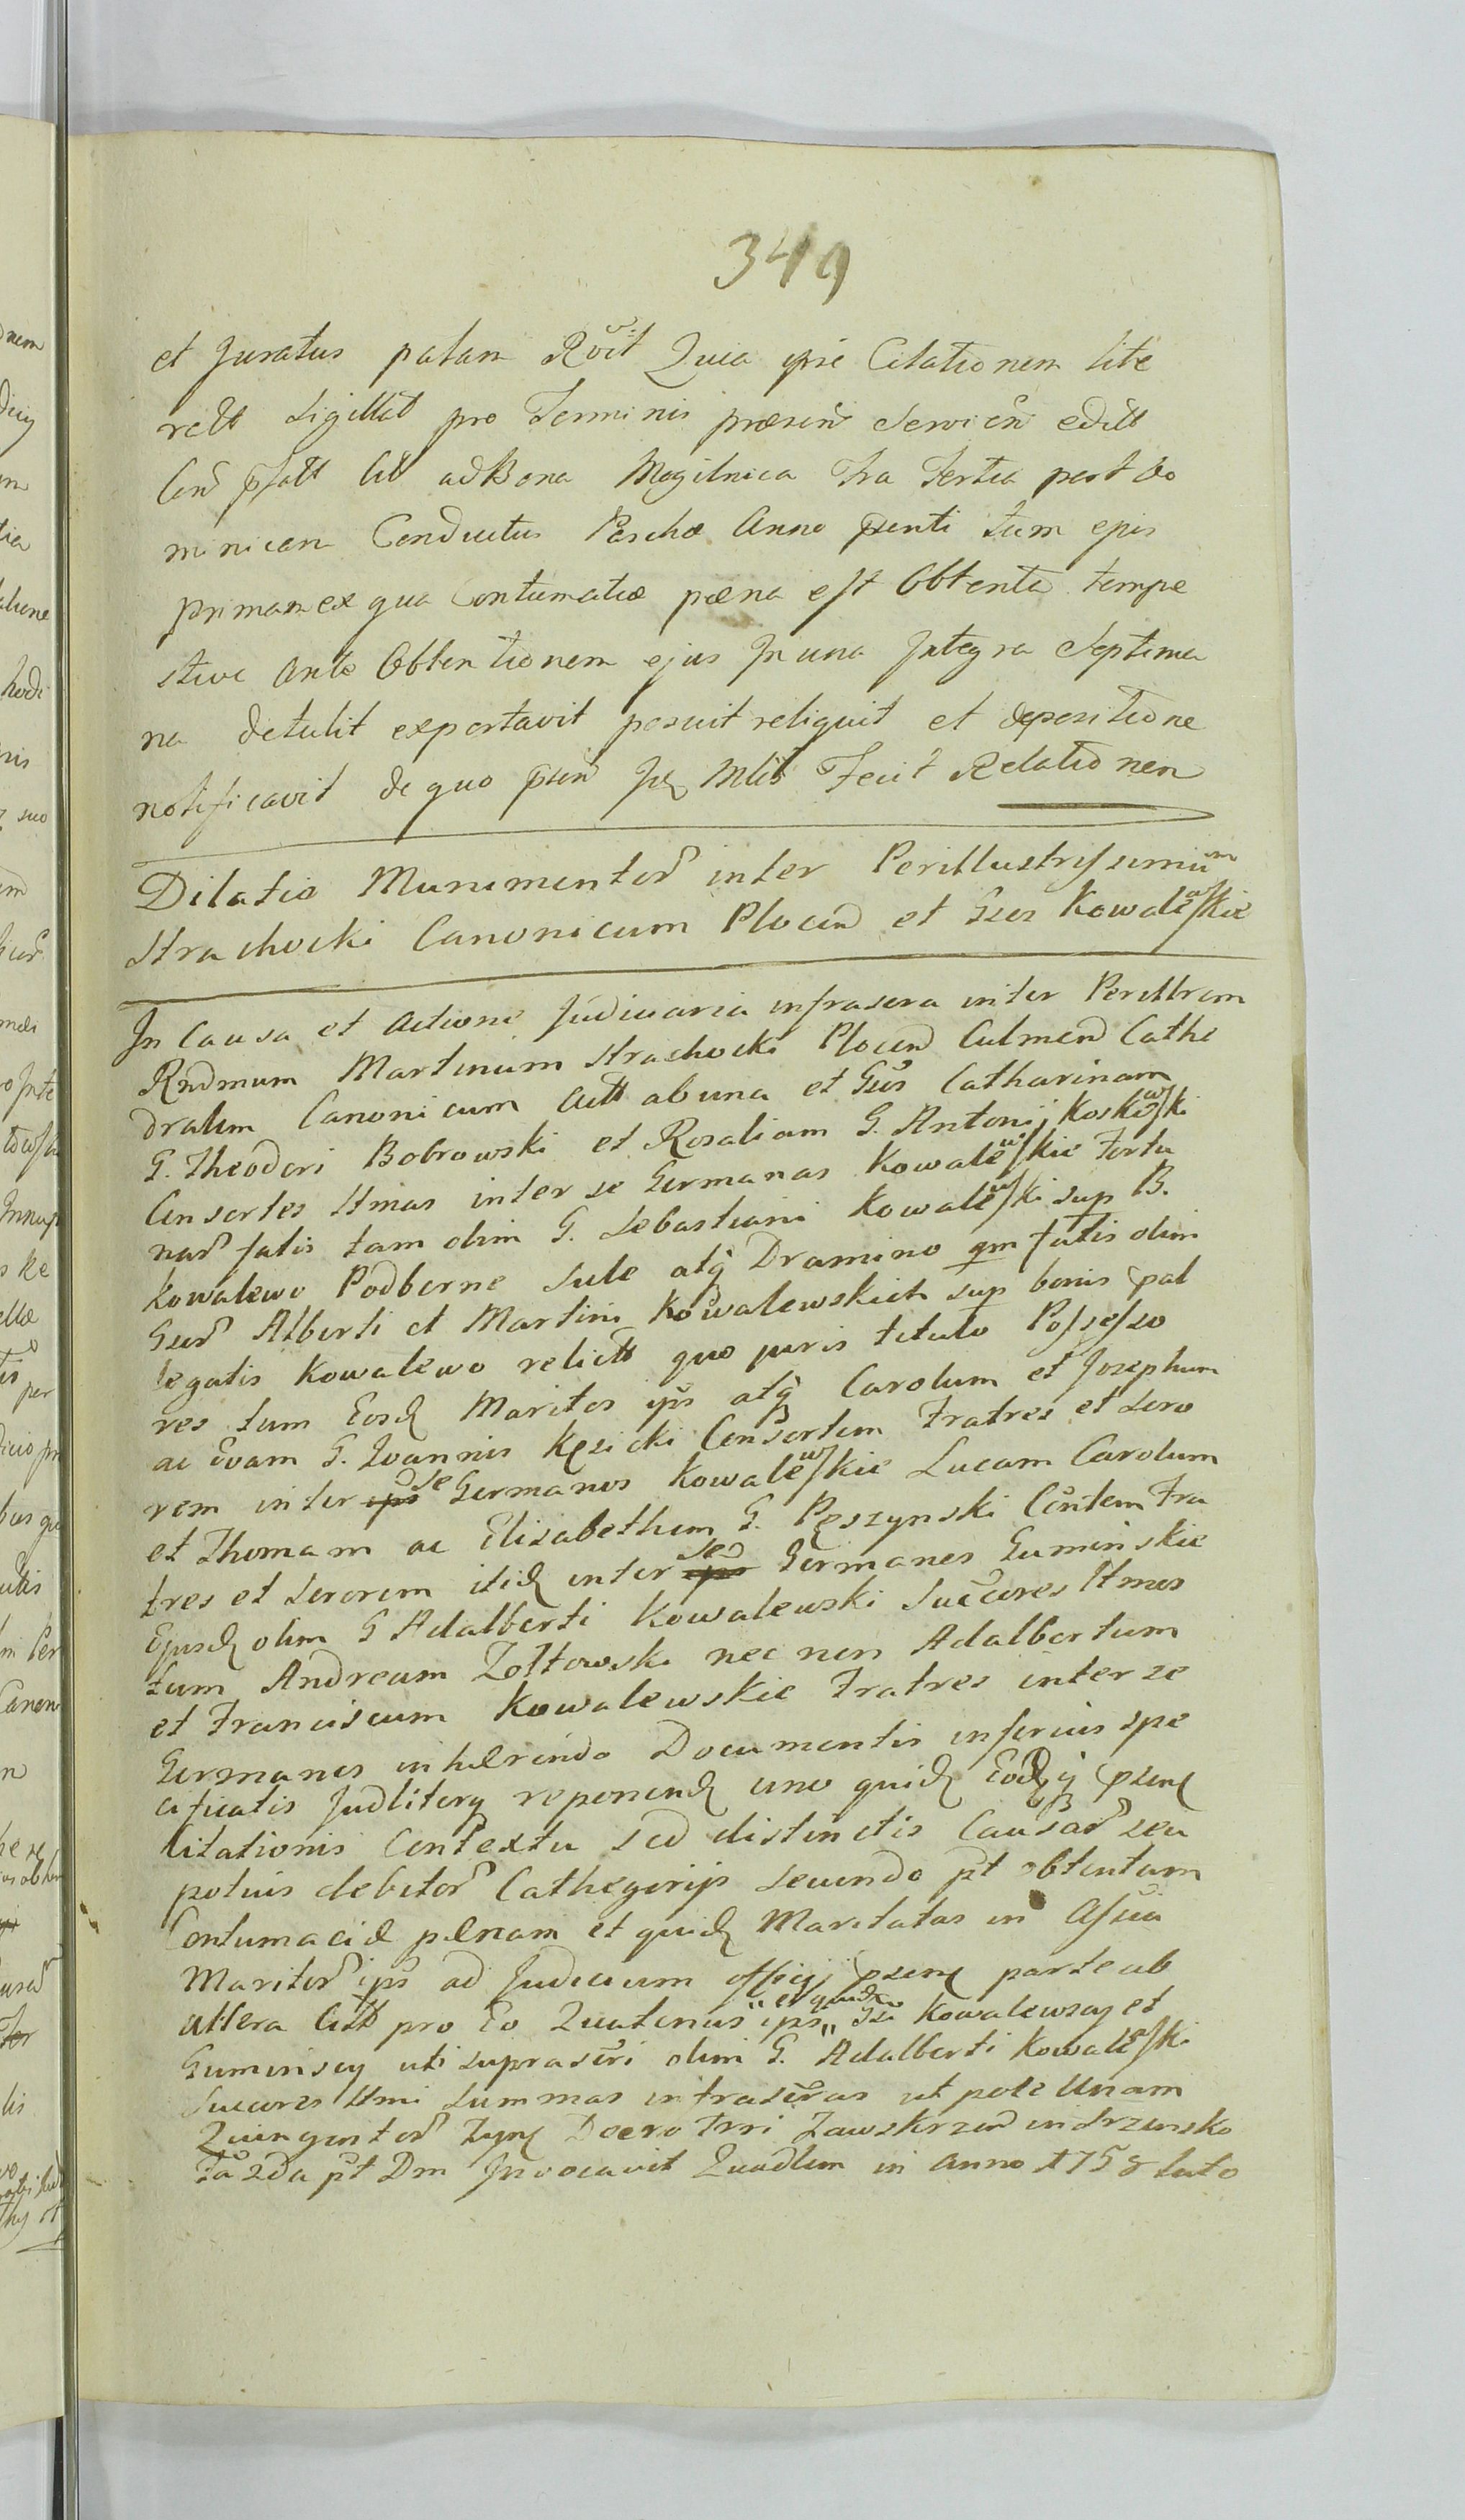 349
et Juratus palam Rčit Quia ipse Citationem lite
ralt Sigillat pro Terminis præsen Servien edilt
Con Citt ad Bona Mogilnica Fra Tertia post Do
minicam Conductus Paschæ Anno pænti tum ejus
primam ex qua Contumatiæ pæna est Obtenta tempe
stive ante Obtentionem ejus In una Integra Septima
na detulit exportavit posuit reliquit et depositione
notificavit de quo Fecit Relationem
Dilatio Munimentor inter Perillustrissimum
Strachocki Canonicum Plocen et Gsos Kowalewskie
In Causa et Actione Judiciaria infrascra inter Perillrem
Rndmum Martinum Strachocki Plocen Culmen Cathe
dralem Canonicum Actt ab una et Gsos Catharinam
G. Theodori Bobrowski et Rosaliam G. Antonij Koskowski
Consortes Itmas inter se Germanas Kowalewskie Fortu
nar fatis tam olim G. Sebastiani Kowalewski sup B.
Kowalewo Podborne Sule atq Dramino qm fatis olim
Gsor Alberti et Martini Kowalewskich sup bonis pal
legatis Kowalewo relictt quo juris titulo Possesso
res tum Eosd Maritos ips atq Carolum et Josephum
ac Evam G. Joannis Kęsicki Consortem Fratres et Soro
rem inter ips se Germanos Kowalewskie Lucam Carolum
et Thomam ac Elisabetham G. Pęszynski Contem Fra
tres et Sororem itid inter ips se Germanos Guminskie
Ejusd olim G Adalberti Kowalewski Succores Itmos
tum Andream Zołtowski nec non Adalbertum
et Franciscum Kowalewskie Fratres inter se
Germanos inhærendo Documentis inferius spe
cificatis Judliterq reponend uno quid Eodq
Citationis Contextu sed distinctis Causar seu
potius debitor Cathegorijs secundo pt obtentam
Contumaciæ pænam et quid Maritatas in Assia
Maritor ips ad Judicium officij psens parte ab
altera Citt pro Eo Quatenus ips " et quid " Gsi Kowalewscy et
Guminscy uti suprascri olim G. Adalberti Kowalewski
Succores Itmi Summas infrascras utpote Unam
Quingentor Zawskrzen in Srzensko
Fa 2da pt Dm Invocavit Quadlem in Anno 1758 lato